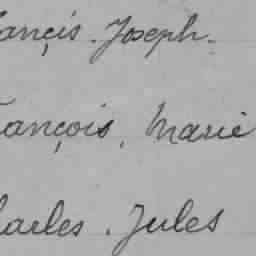 ançis. Joseph.
ançois, Marie
arles. Jules